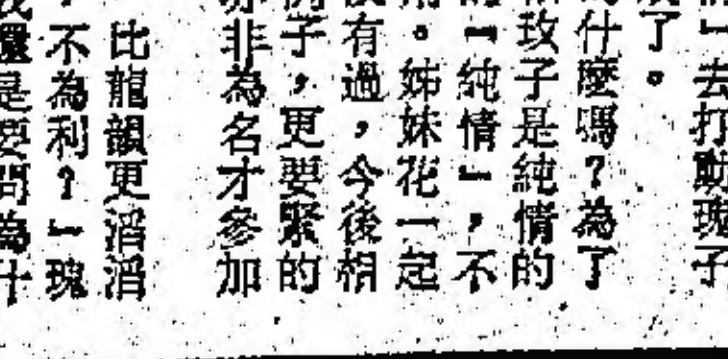 」去打動瑰子
了。
什麼嗎?為了
玫子是純情的
「純情」,不
。姊妹花一起
有過,今後相
子,更要緊的
非為名才參加
比龍韻更滔滔
,不為利?」瑰
還是要問為什